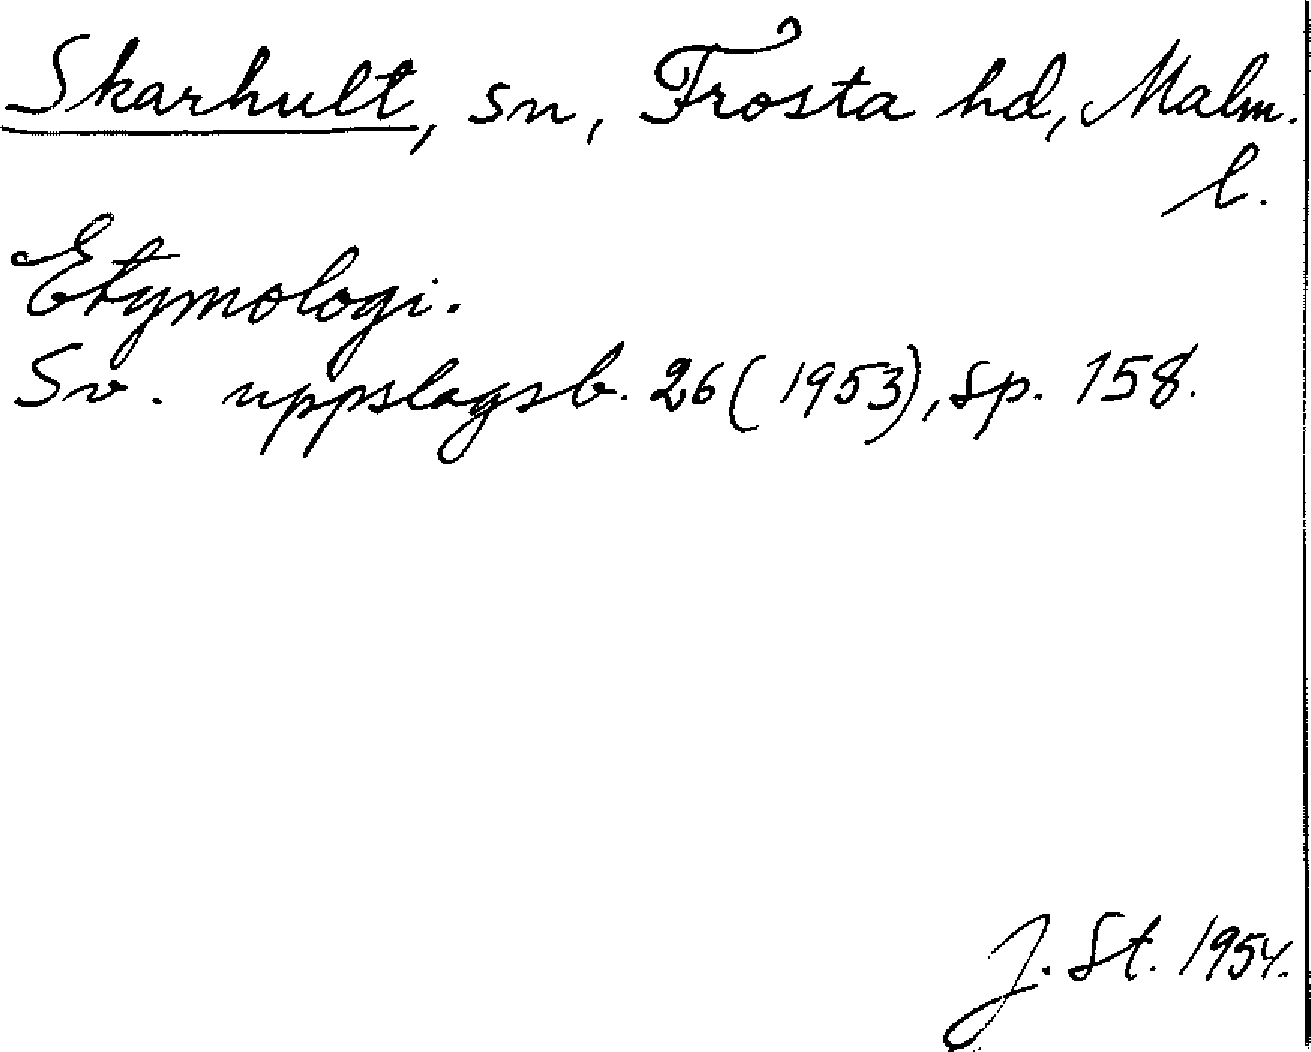 Skarhult, sn, Frosta hd, Malm.
l.
Etymologi.
Sv. uppslagsb. 26 (1953), sp. 158.
J. St. 1954.